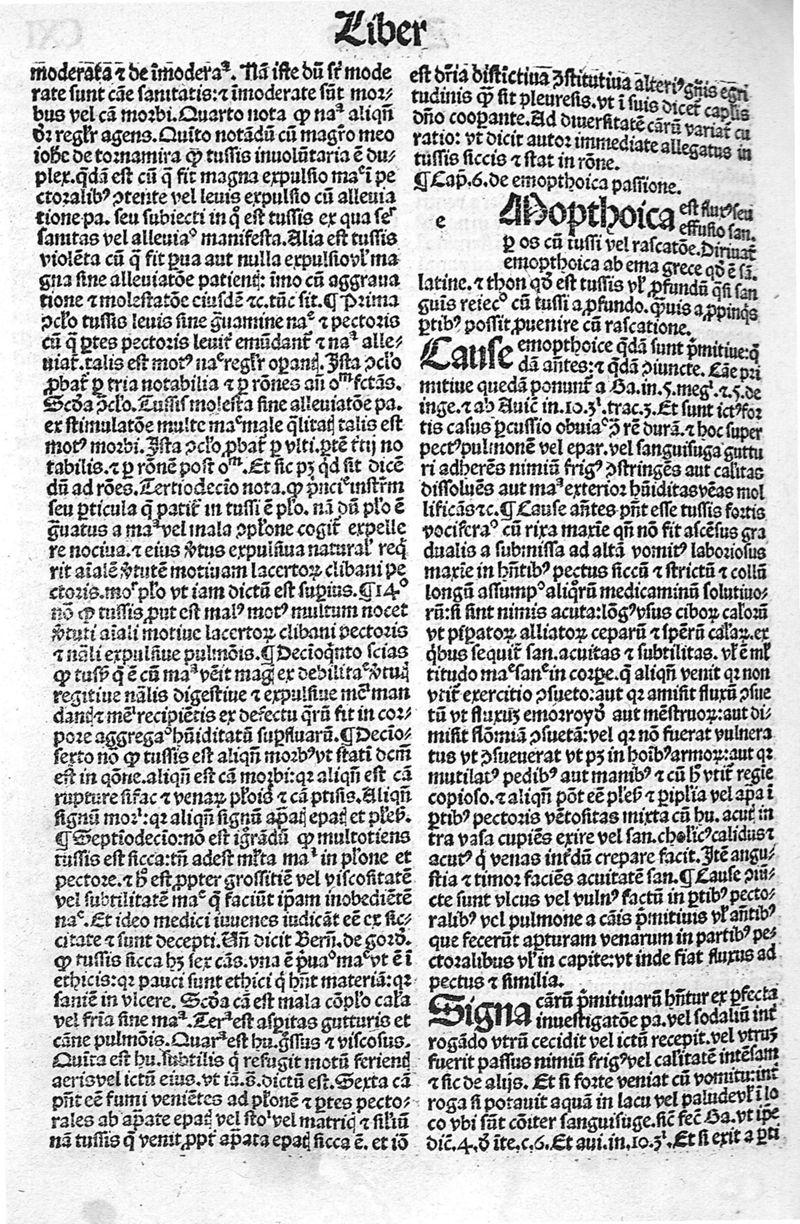 Liber
moderata ⁊ de īmodera. Nā iste dū sr̄ mode
rate sunt cāe sanitatis: ⁊ īmoderate sūt mor-
bus vel cā morbi. Quarto nota ꝙ naᵃ aliqn̄
agens. Quīto notādū cū magr̄o meo
iohē de tornamira ꝙ tussis involūtaria ē du-
plex. qdā est cū q̄ fit magna expulsio maᵉ ī pe
ctoralibꝰ ɔtente vel levis expulsio cū allevia
tione pa. seu subiecti in q̄ est tussis ex qua
sanitas vel alleviaᵒ manifesta. Alia est tussis
violēta cū q̄ fit ꝑua aut nulla expulsio vl̓ ma
gna sine alleviatōe patient: īmo cū aggrava
tione ⁊ molestatōe eiusdē ⁊c. tūc sit. ¶ Prima
ɔclo tussis levis sine gravamine naᵉ ⁊ pectoris
cū q̄ ꝑtes pectoris emūdant̄ ⁊ naᵃ alle-
viat̄. talis est motꝰ naᵉ. Ista ɔclo
ꝓbat̄ ꝑ tria notabilia ⁊ ꝑ rōnes
Scd̄a ɔclo. Tussis molesta sine alleviatōe pa.
ex stimulatōe multe maᵉ male talis est
motꝰ morbi. Ista ɔclo ꝓbat̄ ꝑ ulti. ꝑtē no
tabilis. ⁊ ꝑ rōnē post. Et sic pꝫ qd̄ sit dicē
dū ad rōes. Tertiodecīo nota. ꝙ
seu ꝑticula q̄ patit̄ in tussi ē plo. nā dū plo ē
gravatus a maᵃ vel mala ɔplone cogit̄ expelle
re nociva ⁊ eius ꝟtus expulsiva natural̓ reqͥ
rit aīalē ꝟtutē motivam lacertoꝝ clibani pe
ctoris. vt iam dictū est supius. ¶ 14ᵒ
nō ꝙ tussis ꝓut est malꝰ motꝰ multum nocet
ꝟtuti aīali motive lacertoꝝ clibani pectoris
⁊ nāli expulsive pulmōis. ¶ Decioqnto scias
ꝙ q̄ ē cū maᵃ vēit ex debilitaᵉ ꝟtuꝗ
regitive nālis digestive ⁊ expulsive man
⁊ recipiētis ex defectu qr̄ū fit in cor-
pore aggregaᵒ hūiditatū suꝑfluarū. ¶ Decio-
sexto nō ꝙ tussis est aliqn̄ morbꝰ vt statī dcm̄
est in qōne. aliqn̄ est cā morbi: qꝛ aliqn̄ est cā
rupture ⁊ venaꝝ ⁊ cā ptisis. Aliqn̄
signū morbi: qꝛ aliqn̄ signū ⁊
¶ Septiodecio: nō est igrādū ꝙ multotiens
tussis est sicca: tn̄ adest ml̓ta maᵃ in plone et
pectore. ⁊ h̄ est ꝓpter grossitiē vel viscositatē
vel subtilitatē maᵉ q̄ faciūt ip̄am inobediētē
naᵉ. Et ideo medici iuvenes iudicāt eē ex sic-
citate ⁊ sunt decepti. Un̄ dicit Bern̄. de gord̄.
ꝙ tussis sicca hꝫ sex cās. vna ē ꝑvaᵒ maᵉ vt ē ī
ethicis: qꝛ pauci sunt ethici q̄ hn̄t materiā: qꝛ
saniē in vlcere. Scd̄a cā est mala cōplo
vel fr̄ia sine maᵃ. Terᵃ est aspitas gutturis et
cāne pulmōis. Quarᵃ est hu. grossus ⁊ viscosus.
Quīta est hu. subtilis q̄ refugit motū
aeris vel ictū eius. vt iā. s̄. dictū est. Sexta cā
pn̄t eē fumi veniētes ad plonē ⁊ ꝑtes pecto-
rales ab apate vel vel ⁊
nā tussis q̄ venit ꝓpt̄ sicca ē. et iō
est dr̄ia distinctiva ɔstitutiva alteriꝰ egri
tudinis ꝙ sit pleuresis. vt ī suis dicet̄
dn̄o cooꝑante. Ad diversitatē cārū variat̄ cu
ratio: vt dicit autor immediate allegatus in
tussis siccis ⁊ stat in rōne.
¶ Cap. 6. de emopthoica passione.
e Mopthoica est fluxꝰ seu
effusio san.
ꝑ os cū tussi vel rascatōe. Dirivat̄
emopthoica ab ema grece qd̄ ē sā.
latine. ⁊ thon qd̄ est tussis vl̓ ꝓfundū san
guis reiecᵒ cū tussi a ꝓfundo. Quis a ꝓpinqͥs
ꝑtibꝰ possit ꝓvenire cū rascatione.
Cause emopthoice qdā sunt p̄mitive: q̄
dā an̄tes: ⁊ qdā ɔiuncte. Cāe pri
mitive quedā ponunt̄ a Ga. in. 5. megͥ. ⁊. 5. de
inge. ⁊ ab Aviē in. 10. 3ͥ. trac. 3. Et sunt ictꝰ for
tis casus ꝑcussio obviaᵉ ɔ rē durā. ⁊ hoc super
pectꝰ pulmonē vel epar. vel sanguisuga guttu
ri adherēs nimiū frigꝰ ɔstringēs aut calitas
dissolvēs aut maᵃ exterior hūiditas vēas mol
lificās ⁊c. ¶ Cause an̄tes pn̄t esse tussis fortis
vociferaᵒ cū rixa maxīe qn̄ nō fit ascēsus gra
dualis a submissa ad altā vomitꝰ laboriosus
maxīe in hn̄tibꝰ pectus siccū ⁊ strictū ⁊ collū
longū assumpᵒ aliqr̄ū medicaminū solutivo-
rū: si sint nimis acuta: lōgꝰ vsus ciboꝝ
vt alliatoꝝ ceparū ⁊ ex
qͥbus sequit̄ san. acuitas ⁊ subtilitas. vl̓ ē ml̓
titudo maᵉ sanᵉ in corꝑe. q̄ aliqn̄ venit qꝛ non
vtit̄ exercitio ɔsueto: aut qꝛ amisit fluxū ɔsue
tū vt fluxus emorroyd̄ aut mēstruoꝝ: aut di-
misit flōmiā ɔsuetā: vel qꝛ nō fuerat vulnera
tus vt ɔsueverat vt pꝫ in hoībꝰ armoꝝ: aut qꝛ
mutilatꝰ pedibꝰ aut manibꝰ ⁊ cū h̄ vtit̄ regīe
copioso. ⁊ aliqn̄ pōt eē ⁊ vel ī
ꝑtibꝰ pectoris vētositas mixta cū hu. in
tra vasa cupiēs exire vel san. cholicꝰ calidus ⁊
acutꝰ q̄ venas crepare facit. Itē angu-
stia ⁊ timor faciēs acuitatē san. ¶ Cause ɔiū-
cte sunt vlcus vel vulnꝰ factū in ꝑtibꝰ pecto-
ralibꝰ vel pulmone a cāis p̄mitivis vl̓ an̄tibꝰ
que fecerūt aꝑturam venarum in partibꝰ pe-
ctoralibus vl̓ in capite: vt inde fiat fluxus ad
pectus ⁊ similia.
Signa cārū p̄mitivarū hn̄tur ex ꝑfecta
investigatōe pa. vel sodaliū int̄
rogādo vtrū cecidit vel ictū recepit. vel vtrū
fuerit passus nimiū frigꝰ vel calitatē intēsam
⁊ sic de alijs. Et si forte veniat cū vomitu: int̄
roga si potavit aquā in lacu vel palude vl̓ ī lo
co vbi sūt cōiter sanguisuge. sic fec̄ Ga. vt ipe
dic̄. 4. d̄ īte. c. 6. Et avi. in. 10. 3ͥ. Et si exit a ꝑti